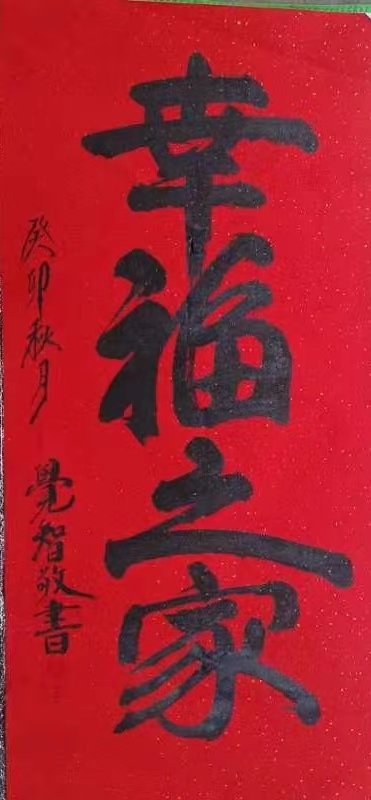 幸福之家
癸卯秋月
覺智敬書